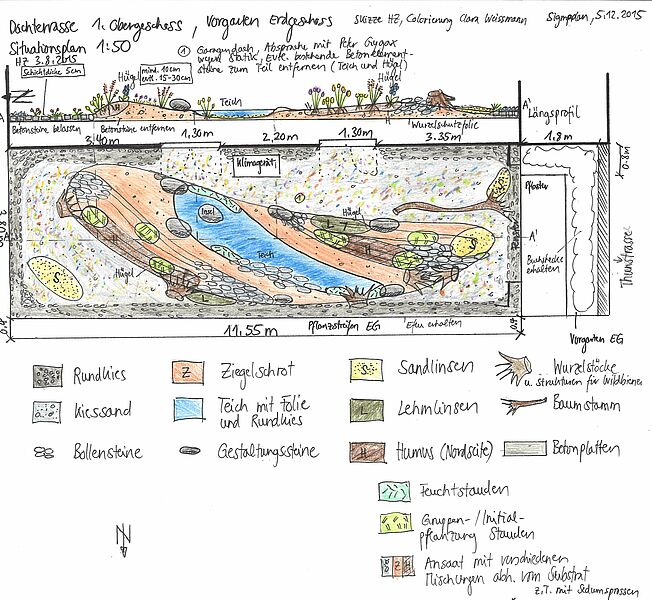 Dachterrasse 1. Obergeschoss, Vorgarten Erdgeschoss
Skizze HZ, Colorierung Clara Weissmann
Signplan, 5.12.2015
Situationsplan 1:50
HZ 3.8.2015
Schichtdicke 5cm
① Garagendach, Absprache mit Peter Gygax
wegen Statik, evtl. bestehende Betonelement-
steine zum Teil entfernen (Teich und Hügel)
Hügel
mind. 10cm
evtl. 15-30cm
Hügel
Teich
N
H
H
A'
Längsprofil
Betonsteine belassen
Betonsteine entfernen
Wurzelschutzfolie
3.40m
1,30m
2,20m
1.30m
3.35m
1.8m
0.8m
Klimagerät
Pflaster
Insel
Hügel
Teich
Hügel
S
S
S
L
L
H
H
Z
A'
Buchshecke
erhalten
Thunstrasse
0.4
11.55m
Pflanzstreifen EG
Efeu erhalten
0.4
Vorgarten EG
Rundkies
Z
Ziegelschrot
Sandlinsen
Wurzelstöcke
u. Strukturen für Wildbienen
Kiessand
Teich mit Folie
und Rundkies
L
Lehmlinsen
Baumstamm
Bollensteine
Gestaltungssteine
H
Humus (Nordseite)
Betonplatten
Feuchtstauden
Gruppen-/Initial-
pflanzung Stauden
N
Z
H
Ansaat mit verschiedenen
Mischungen abh. vom Substrat
z.T. mit Sedumsprossen